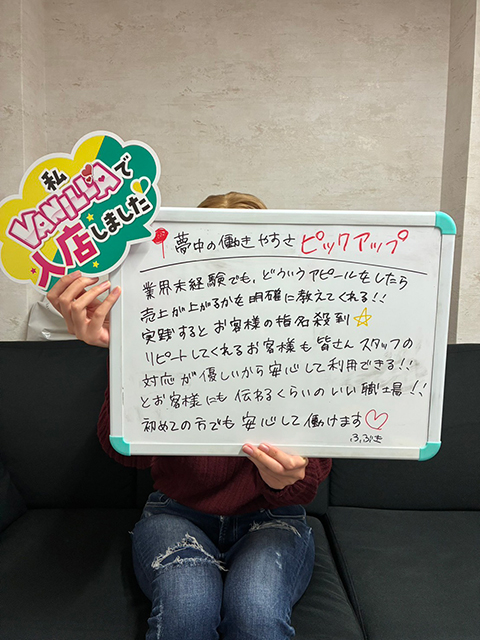 私
VANILLAで
入店しました!
夢中の働きやすさ ピックアップ
業界未経験でも、どういうアピールをしたら
売上が上がるかを明確に教えてくれる!!
実践するとお客様の指名殺到☆
リピートしてくれるお客様も皆さんスタッフの
対応が優しいから安心して利用できる!!
とお客様にも伝わるくらいのいい職場!!
初めての方でも安心して働けます♡
ふぶき